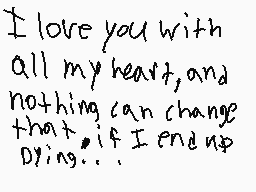 I love you with
all my heart, and
nothing can change
that, if I end up
Dying...